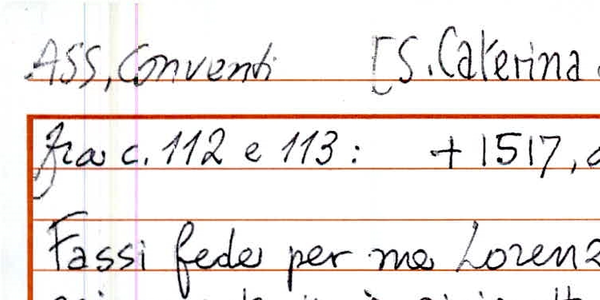 ASS, Conventi [S. Caterina
fra c. 112 e 113: + 1517,
Fassi fede per me Lorenz